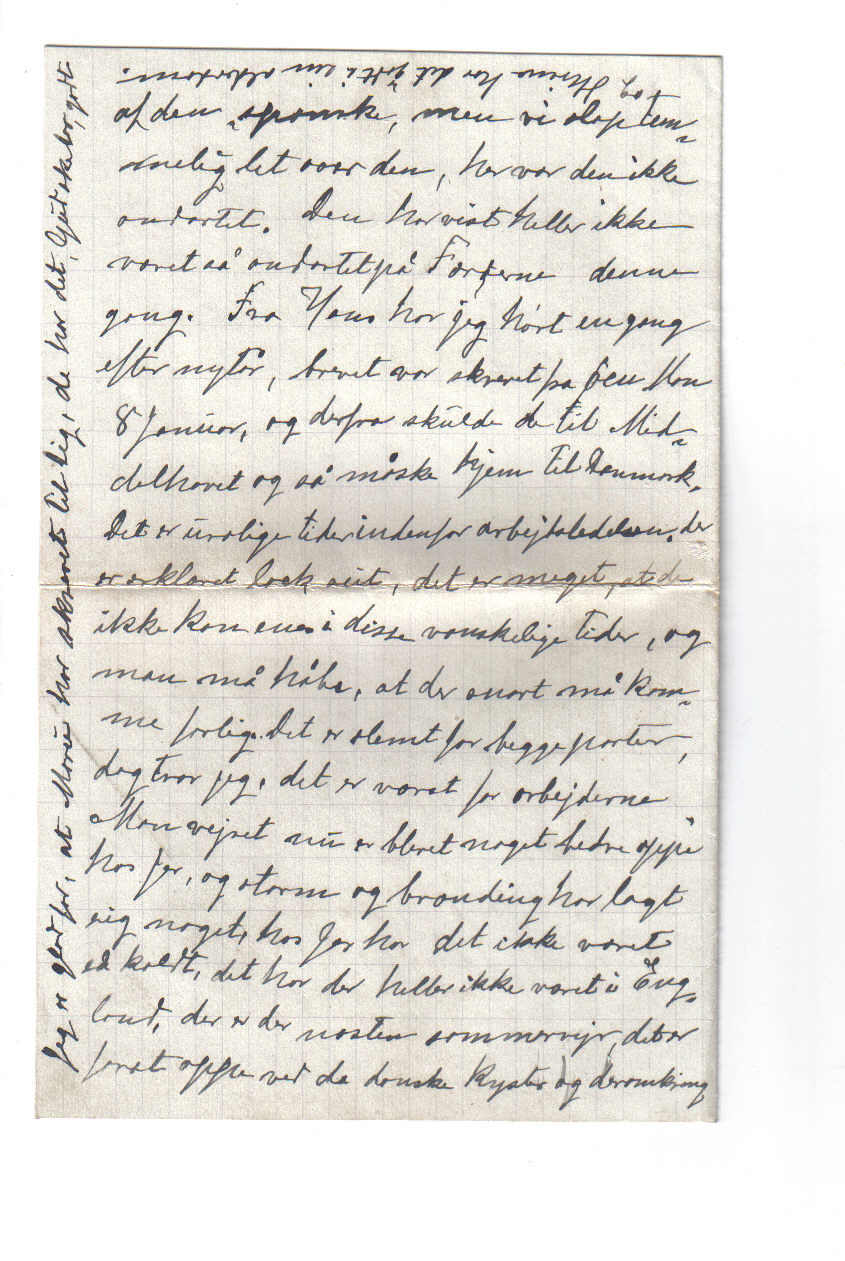 af den "spanske, men vi slap tem-
melig let over den, her var den ikke
ondartet. Den har vist heller ikke
været så ondartet på Færøerne denne
gang. Fra Hans har jeg hørt en gang
efter nytår, brevet var skrevet fra
8 Januar, og derfra skulde de til Mid-
delhavet og så måske hjem til Danmark.
Det er urolige tider indenfor arbejdsledelsen, der
er erklæret lock out, det er meget, at de
ikke kan enes i disse vanskelige tider, og
man må håbe, at der snart må kom-
me forlig. Det er slemt for begge parter,
dog tror jeg, det er værst for arbejderne
Mon vejret nu er blevet noget bedre oppe
hos Jer, og storm og brænding har lagt
sig noget, hos Jer har det ikke været
så koldt, det har der heller ikke været i Eng-
land, der er der næsten sommervejr, det er
først oppe ved de danske Kyster og deromkring
Jeg er glad for, at Marie har skrevet til dig, de har det, Gud ske lov, godt
og Stina har det godt i sin alderdom.